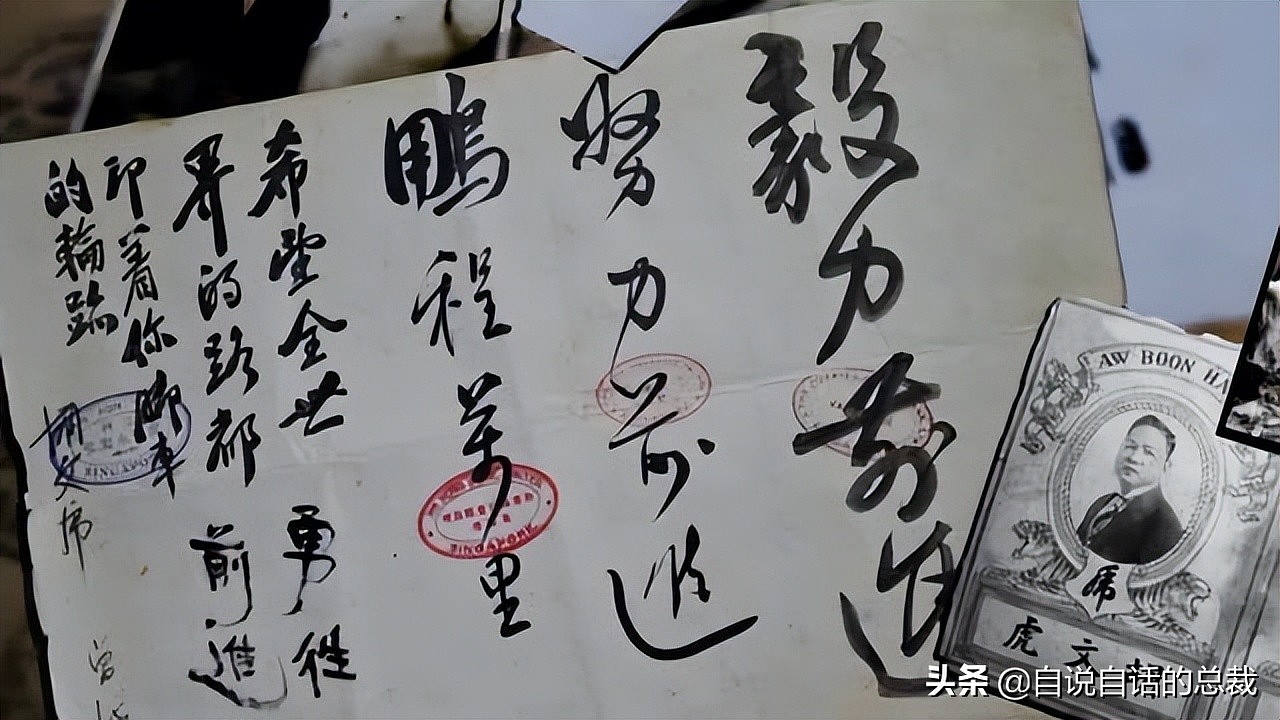 毅力前進
努力前進
鵬程萬里
勇往
前進
希望全世
界的路都
印着你脚车
的輪蹤
胡文虎
AW BOON HA
虎
虎文
头条 @自说自话的总裁